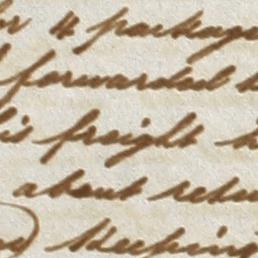 for 4 package
forwarded
his freight
about retu
keeping